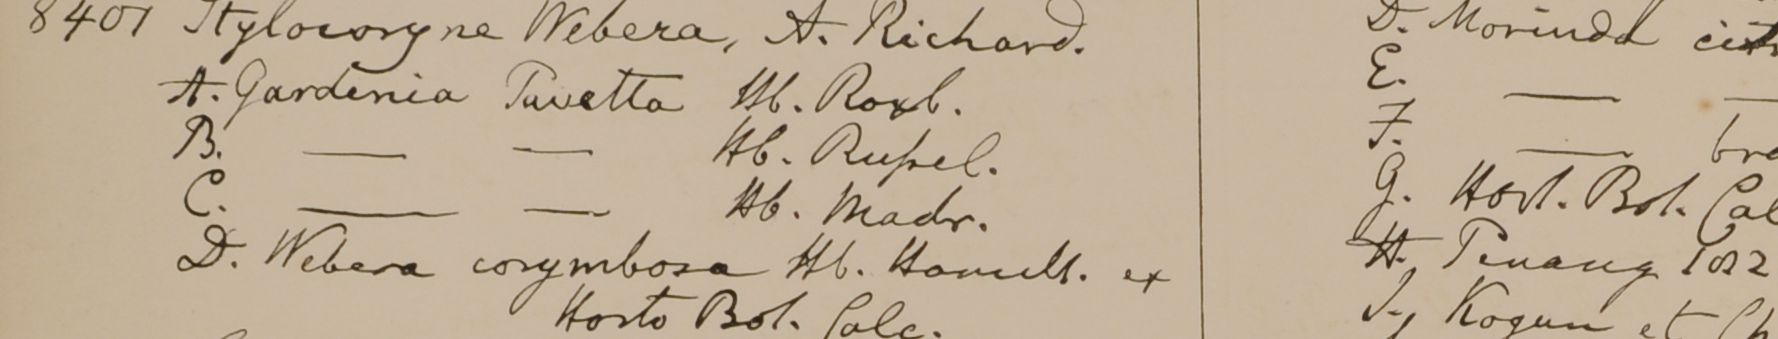 8401 Stylocoryne Webera, A. Richard.
A. Gardenia Pavetta Hb. Roxb.
B. — — Hb. Russel.
C. — — Hb. Madr.
D. Webera corymbosa Hb. Hamilt. ex
Horto Bot. Calc.
D. Morinda citr
E. — —
F. — bra
G. Hort. Bot. Cal
H. Penang 1822
I, Kogun et Ch